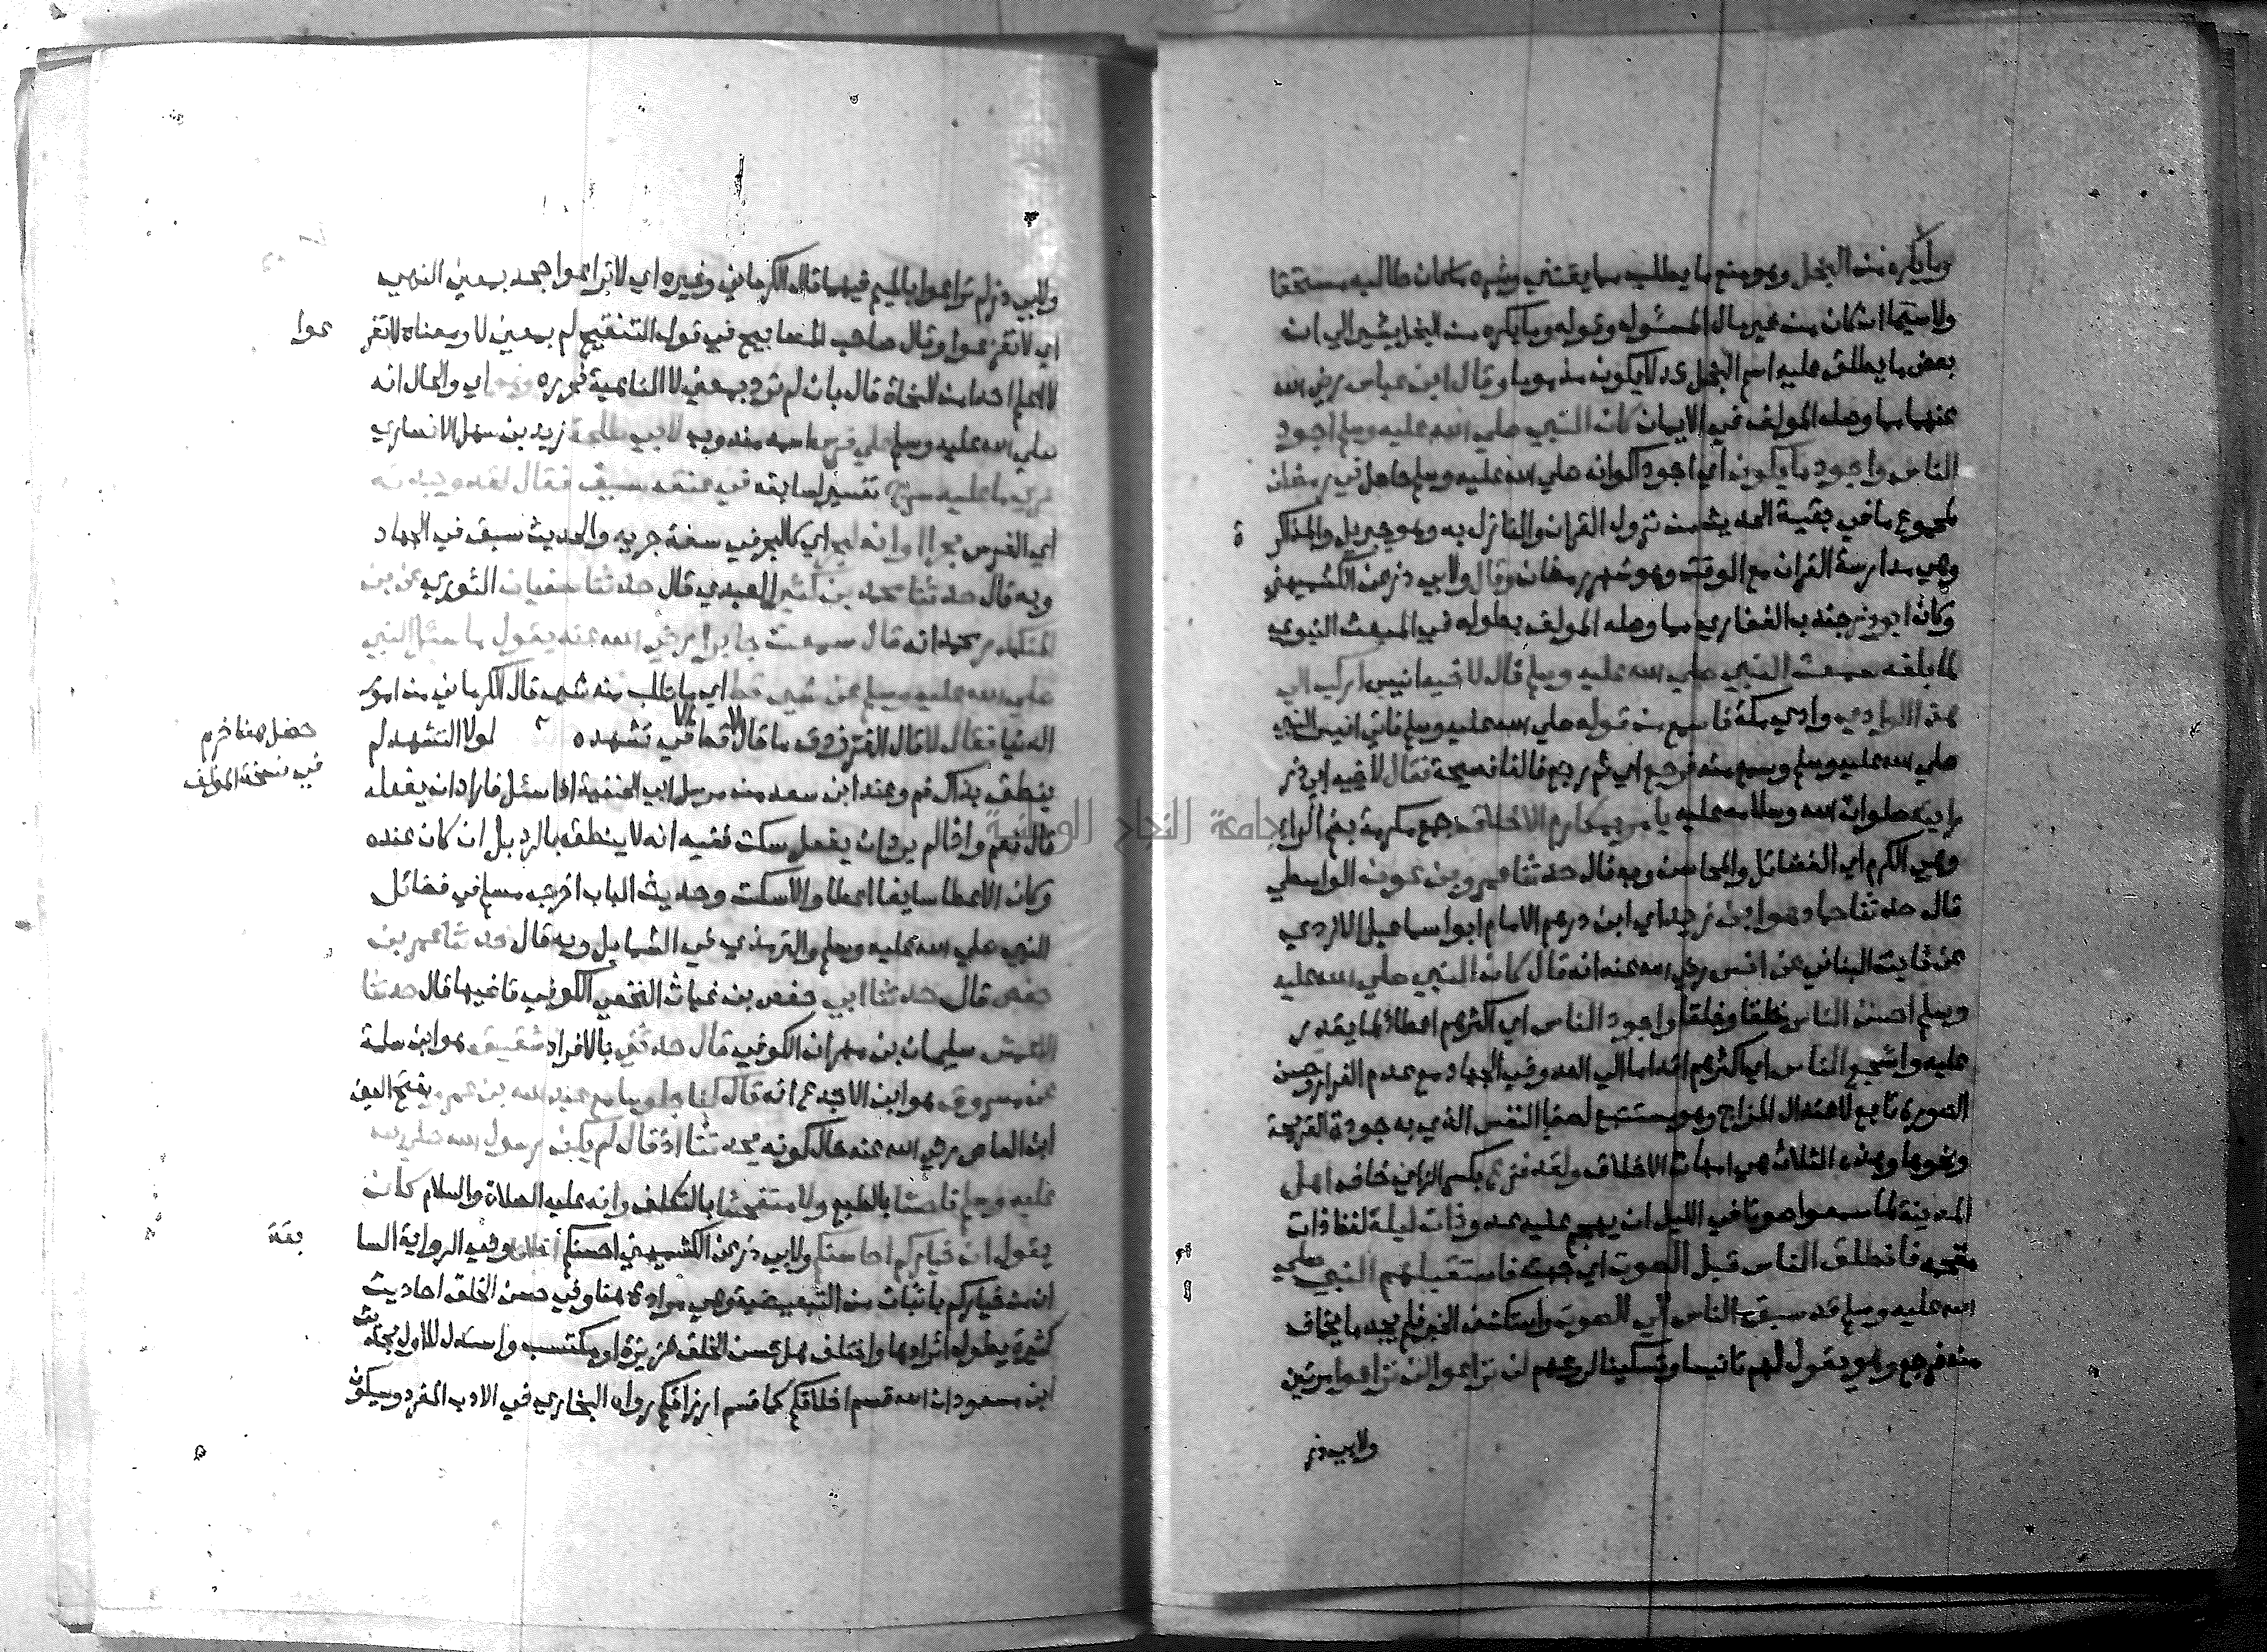 وما يكره من البخل وهو منع ما يطلب مما يقتني وشره ما كان طالبه مستحقا
ولا سيما ان كان من غير مال المسئول وقوله وما يكره من البخل يشير الي ان
بعض ما يطلق عليه اسم البخل قد لا يكون مذموما وقال ابن عباس رضي الله
عنهما مما وصله المولف في الايمان كان النبي صلي الله عليه وسلم اجود
الناس واجود ما يكون اي اجود اكوانه صلي الله عليه وسلم حاصل في رمضان
لمجموع ما في بقية الحديث من نزول القران والنازل به وهو جبريل والمذاكر
ة
وهي مدارسة القران مع الوقت وهو شهر رمضان وقال ولابي ذر عن الكشميهني
وكان ابو ذر جندب الغفاري مما وصله المولف بطوله في المبعث النبوي
لما بلغه مبعث النبي صلي الله عليه وسلم قال لاخيه انيس اركب الي
هذا الوادي وادي مكة فاسمع من قوله صلي الله عليه وسلم فاتي انيس النبي
صلي الله عليه وسلم وسمع منه فرجع اي ثم رجع فالفا فصيحة فقال لاخيه ابي ذر
رايته صلوات الله وسلامه عليه يامر بمكارم الاخلاق جمع مكرمة بضم الراء
وهي الكرم اي الفضائل والمحاسن وبه قال حدثنا عمرو بن عون الواسطي
قال حدثنا حماد هو ابن زيد اي ابن درهم الامام ابو اسماعيل الازدي
عن ثابت البناني عن انس رضي الله عنه انه قال كان النبي صلي الله عليه
وسلم احسن الناس خلقا وخلقا واجود الناس اي اكثرهم اعطاء لما يقدر
عليه واشجع الناس اي اكثرهم اقداما الي العدو في الجهاد مع عدم الفرار وحسن
الصورة تابع لاعتدال المزاج وهو مستتبع لصفا النفس الذي به جودة القريحة
ونحوها وهذه الثلاث هي امهات الاخلاق ولقد فزع بكسر الزاي خاف اهل
المدينة لما سمعوا صوتا في الليل ان يهجم عليه عدو ذات ليلة لفظ ذات
مقحمه فانطلق الناس قبل الصوت اي جهته فاستقبلهم النبي صلي
الله عليه وسلم قد سبق الناس الي الصوت واستكشف الخبر فلم يجد ما يخاف
منه فرجع وهو يقول لهم تانيسا وتسكينا لروعهم لن تراعوا لن تراعوا مرتين
ولابي ذر
ولابي ذر لم تراعوا بالميم فيهما قال الكرماني وغيره اي لا تراعوا جحد بمعني النهي
اي لا تفزعوا وقال صاحب المصابيح في قول التنقيح لم بمعني لا ومعناه لا تفز
عوا
لا اعلم احدا من النحاة قال بان لم ترد بمعني لا الناهية فحرره وهو اي والحال انه
صلي الله عليه وسلم علي فرس اسمه مندوب لابي طلحة زيد بن سهل الانصاري
عري ما عليه سرج تفسير لسابقه في عنقه سيف فقال لقد وجدته
اي الفرس بحرا او انه لبحر اي كالبحر في سعة جريه والحديث سبق في الجهاد
وبه قال حدثنا محمد بن كثير العبدي قال حدثنا سفيان الثوري عن ابن
المنكدر محمد انه قال سمعت جابرا رضي الله عنه يقول ما سئل النبي
صلي الله عليه وسلم عن شي قط اي ما طلب منه شي قال الكرماني من امور
الدنيا فقال لا قال الفرزدق ما قال لا قط الا في تشهده لولا التشهد لم
حصل هنا خرم
في نسخة المؤلف
ينطق بذاك فم وعند ابن سعد من مرسل ابن الحنفية اذا سئل فاراد ان يفعل
قال نعم واذا لم يرد ان يفعل سكت ففيه انه لا ينطق بالرد بل ان كان عنده
وكان الاعطا سايغا اعطا والا سكت وحديث الباب اخرجه مسلم في فضائل
النبي صلي الله عليه وسلم والترمذي في الشمايل وبه قال حدثنا عمر بن
حفص قال حدثنا ابي حفص بن غياث النخعي الكوفي قاضيها قال حدثنا
الاعمش سليمان بن مهران الكوفي قال حدثني بالافراد شقيق هو ابن سلمة
عن مسروق هو ابن الاجدع انه قال كنا جلوسا مع عبد الله بن عمرو بفتح العين
ابن العاص رضي الله عنه حال كونه يحدثنا اذ قال لم يكن رسول الله صلي الله
عليه وسلم فاحشا بالطبع ولا متفحشا بالتكلف وانه عليه الصلاة والسلام كان
يقول ان خياركم احاسنكم ولابي ذر عن الكشميهني احسنكم اخلاقا وفي الرواية السا
بقة
ان من خياركم باثبات من التبعيضية وهي مرادة هنا وفي حسن الخلق احاديث
كثيرة يطول ايرادها واختلف هل حسن الخلق غريزة او مكتسب واستدل للاول بحديث
ابن مسعود ان الله قسم اخلاقكم كما قسم ارزاقكم رواه البخاري في الادب المفرد وسيكون
جامعة النجاح الوطنية